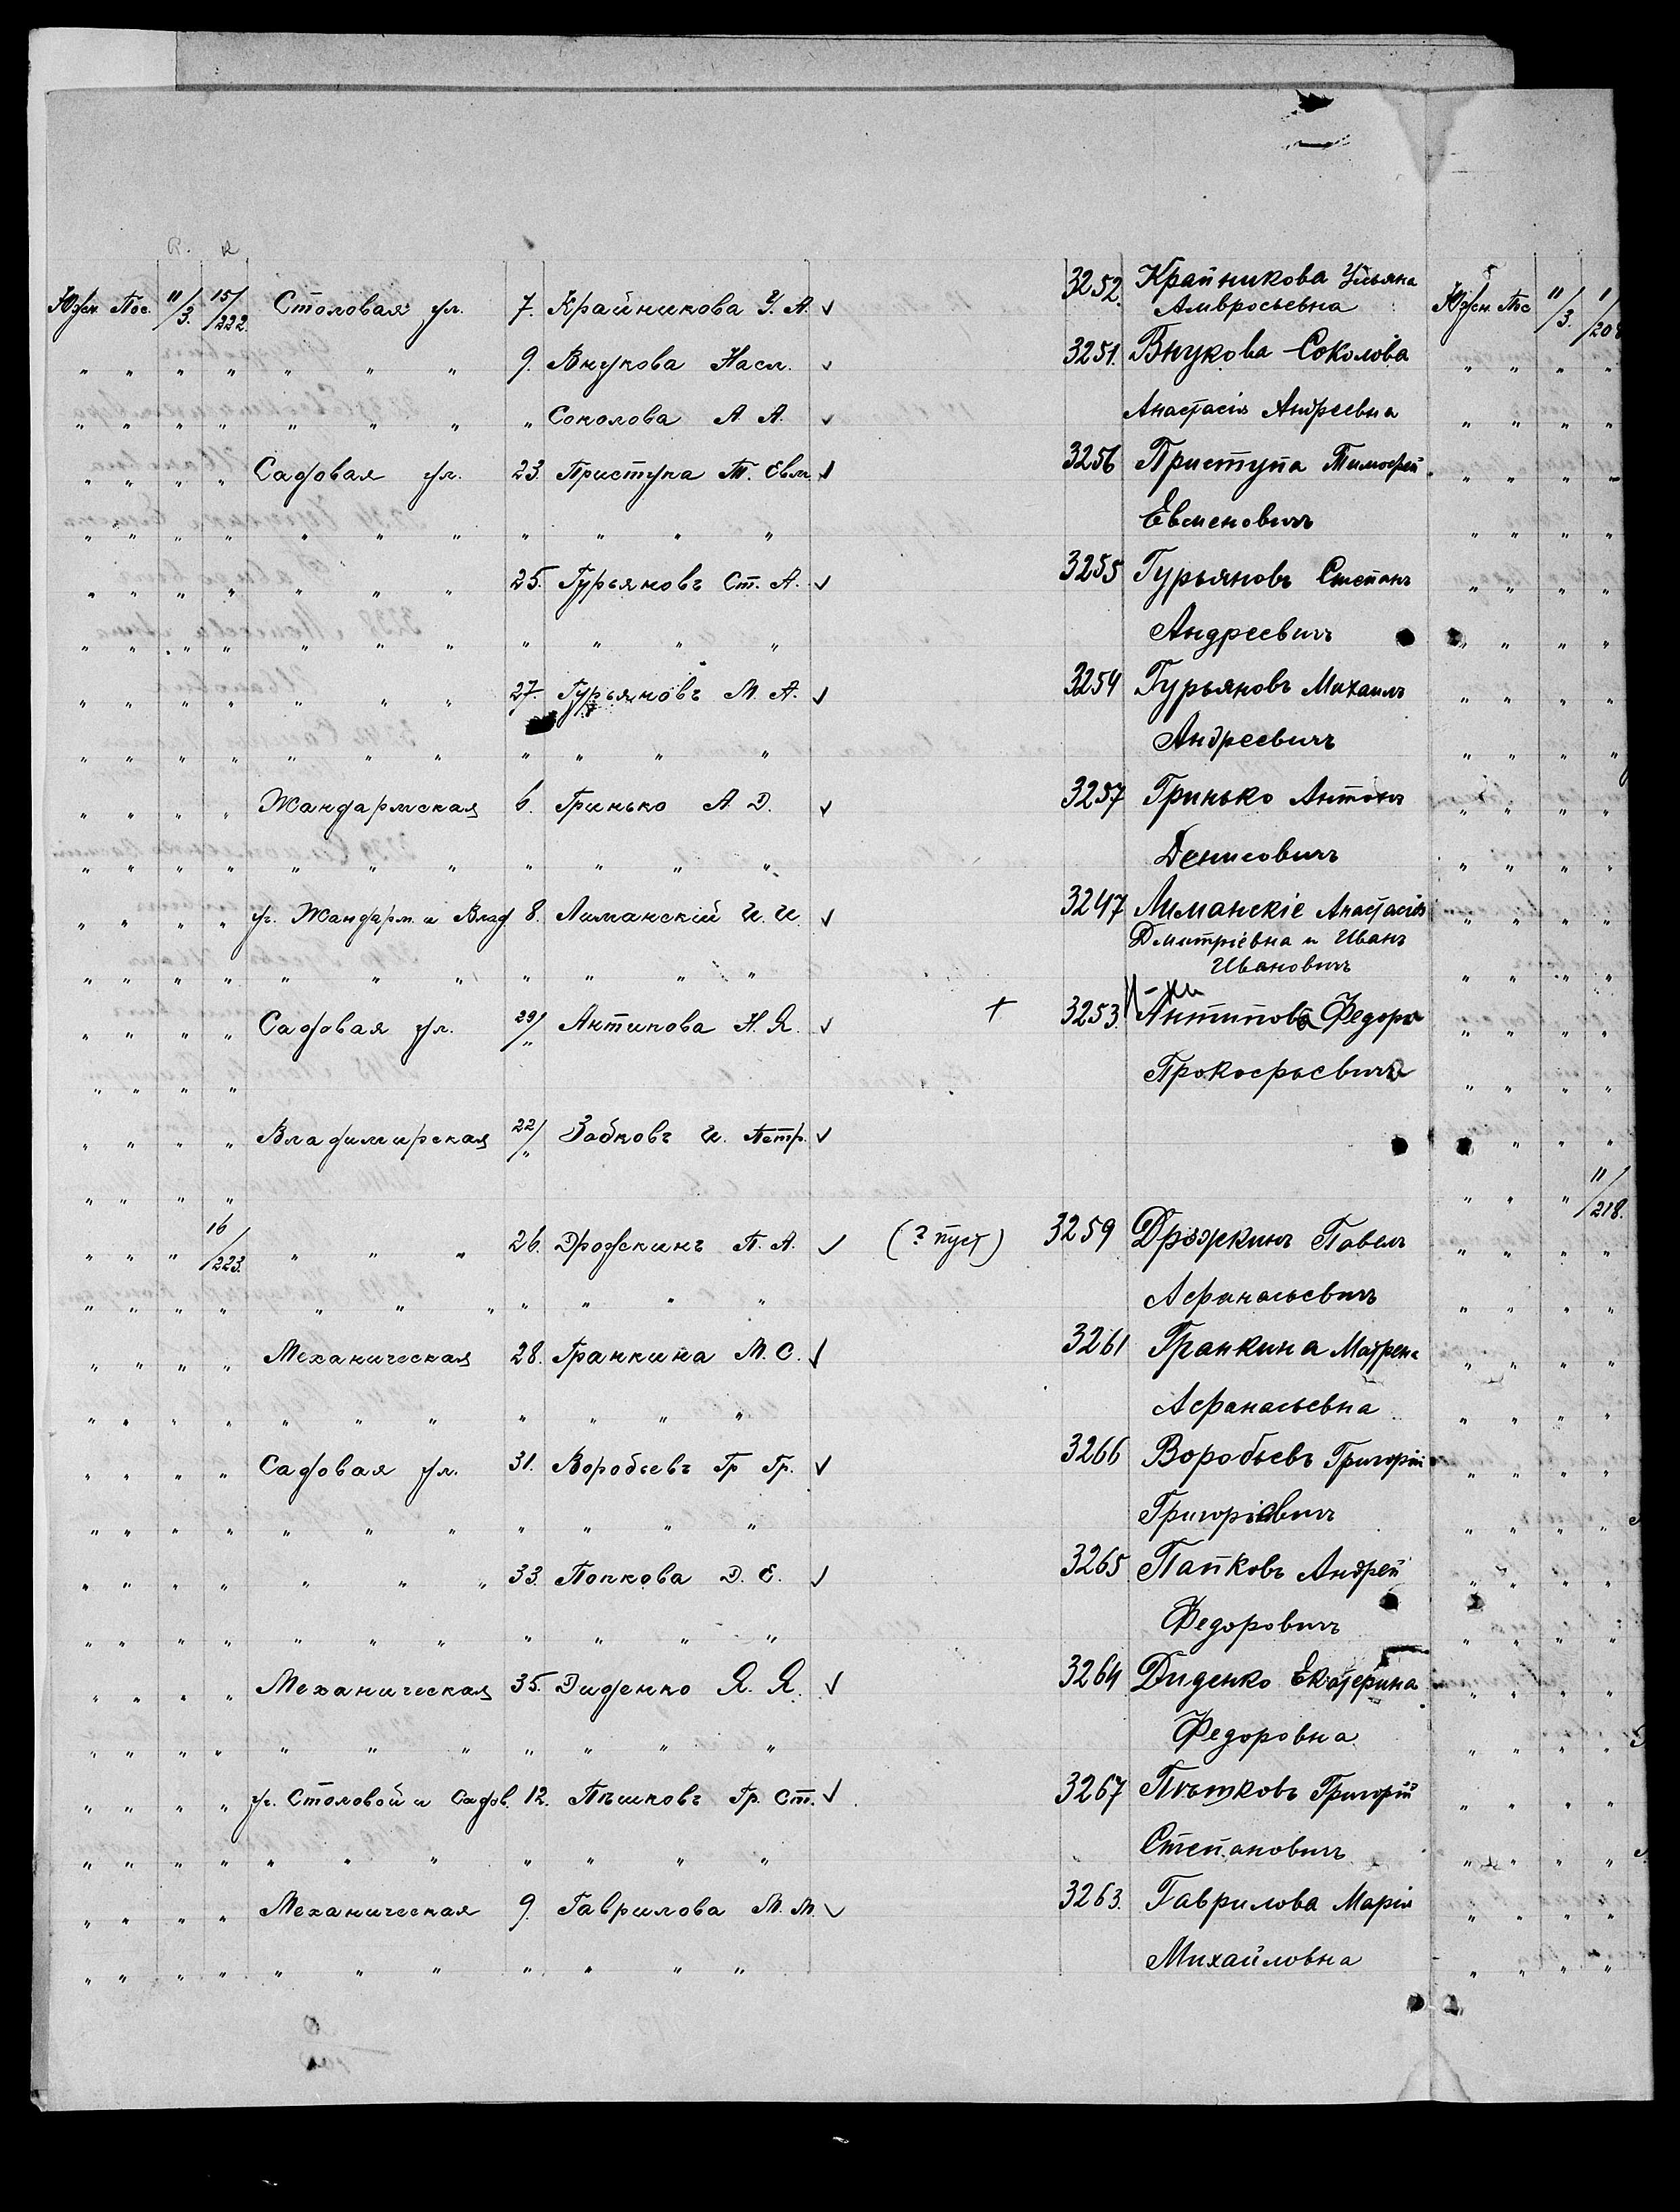 Южн. Пос. 11/3. 15/222. Столовая ул. 7. Крайникова У. А. ✓ 3252. Крайникова Ульяна Южн. Пос 11/3. 1/
Амвросьевна
" " " " " " " 9. Внукова Насл. ✓ 3251. Внукова-Соколова " " " "
" " " " " " " " Соколова А. А. ✓ Анастасія Андреевна " " " "
" " " " Садовая ул. 23. Приступа Т. Евм. ✓ 3256 Приступа Тимофей " " " "
" " " " " " " " " " " Евменовичъ " " " "
" " " " " " " 25. Гурьяновъ Ст. А. ✓ 3255 Гурьяновъ Степанъ " " " "
" " " " " " " " " " " Андреевичъ " " " "
" " " " " " " 27. Гурьяновъ М. А. ✓ 3254 Гурьяновъ Михаилъ " " " "
" " " " " " " " " " " Андреевичъ " " " "
" " " " Жандармская 6. Гринько А. Д. ✓ 3257 Гринько Антонъ " " " "
" " " " " " " " " " " Денисовичъ " " " "
" " " " уг. Жандарм. и Влад. 8. Лиманскій И. И. ✓ 3247 Лиманскіе Анастасія " " " "
Дмитріевна и Иванъ
" " " " " " " " " " " Ивановичъ " " " "
" " " " Садовая ул. 29/" Антипова Н. Я. ✓ + 3253. Н-ки Антипова Федора " " " "
" " " " Прокофьевича " " " "
" " " " Владимирская 22/" Забковъ И. Петр. ✓ " " "
" " " " " " " 11/218.
" " " 16/223. " " " 26. Дрожкинъ П. А. ✓ (? пуст) 3259 Дрожкинъ Павелъ " " " "
" " " " " " " " " " " Афанасьевичъ " " " "
" " " " Механическая 28. Гранкина М. С. ✓ 3261 Гранкина Матрена " " " "
" " " " " " " " " " " Афанасьевна " " " "
" " " " Садовая ул. 31. Воробьевъ Гр Гр. ✓ 3266 Воробьевъ Григорій " " " "
" " " " " " " " " " " Григорiевичъ " " " "
" " " " " " " 33. Попкова Д. Е. ✓ 3265 Папковъ Андрей " " " "
" " " " " " " " " " " Федоровичъ " " " "
" " " " Механическая 35. Диденко Я. Я. ✓ 3264 Диденко Екатерина " " " "
" " " " " " " " " " " Федоровна " " " "
" " " " уг. Столовой и Садов. 12. Пѣшковъ Гр. Ст. ✓ 3267 Пѣшковъ Григорій " " " "
" " " " " " " " " " " Степановичъ " " " "
" " " " Механическая 9. Гаврилова М. М. ✓ 3263. Гаврилова Марія " " " "
" " " " " " " " " " " Михайловна " " " "